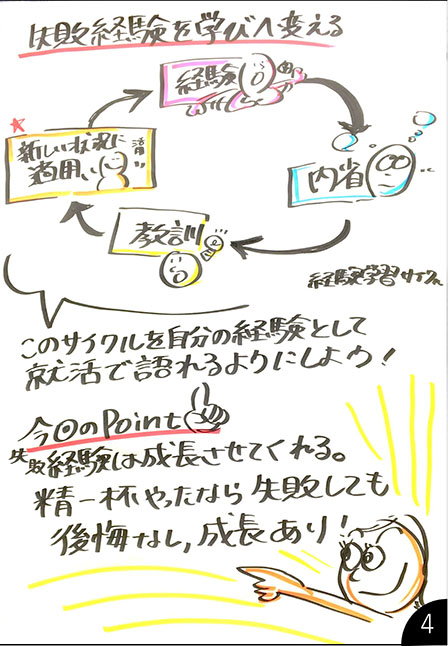 失敗経験を学びへ変える
経験
内省
教訓
新しい状況に
適用い
活用
経験学習サイクル
このサイクルを自分の経験として
就活で語れるようにしよう！
今回のPoint
失敗経験は成長させてくれる。
精一杯やったなら失敗しても
後悔なし,成長あり！
4